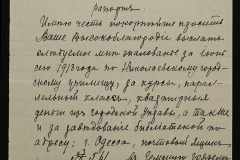 рапортъ
Имѣю честь покорнѣйше просить
Ваше Высокоблагородіе выслать
слѣдуемое мнѣ жалованье за
сего 1913 года по Николаевскому город-
скому училищу, за курсы, парал-
лельный классъ, квадратныя
деньги изъ городской Управы, а также
и за завѣдованіе библіотекой по
адресу: г. Одесса, почтовый ящикъ